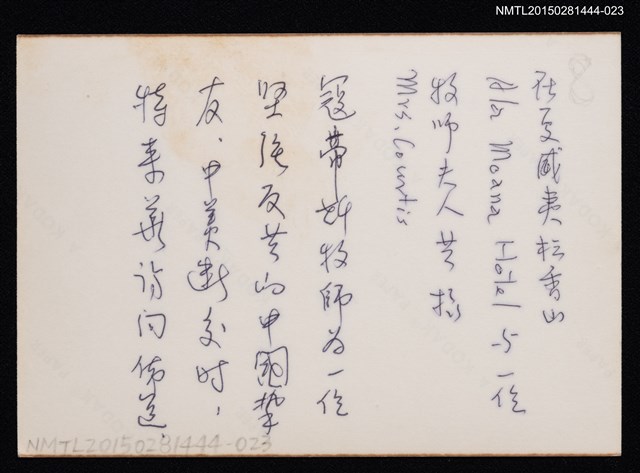 NMTL20150281444-023
8
在夏威夷松香山
Ala Moana Hotel 与一位
牧师夫人共攝
Mrs. Courtis
寇蒂斯牧师为一位
坚強反共的中國摯
友，中美断交时，
特来華訪问傳道。
NMTL20150281444-023